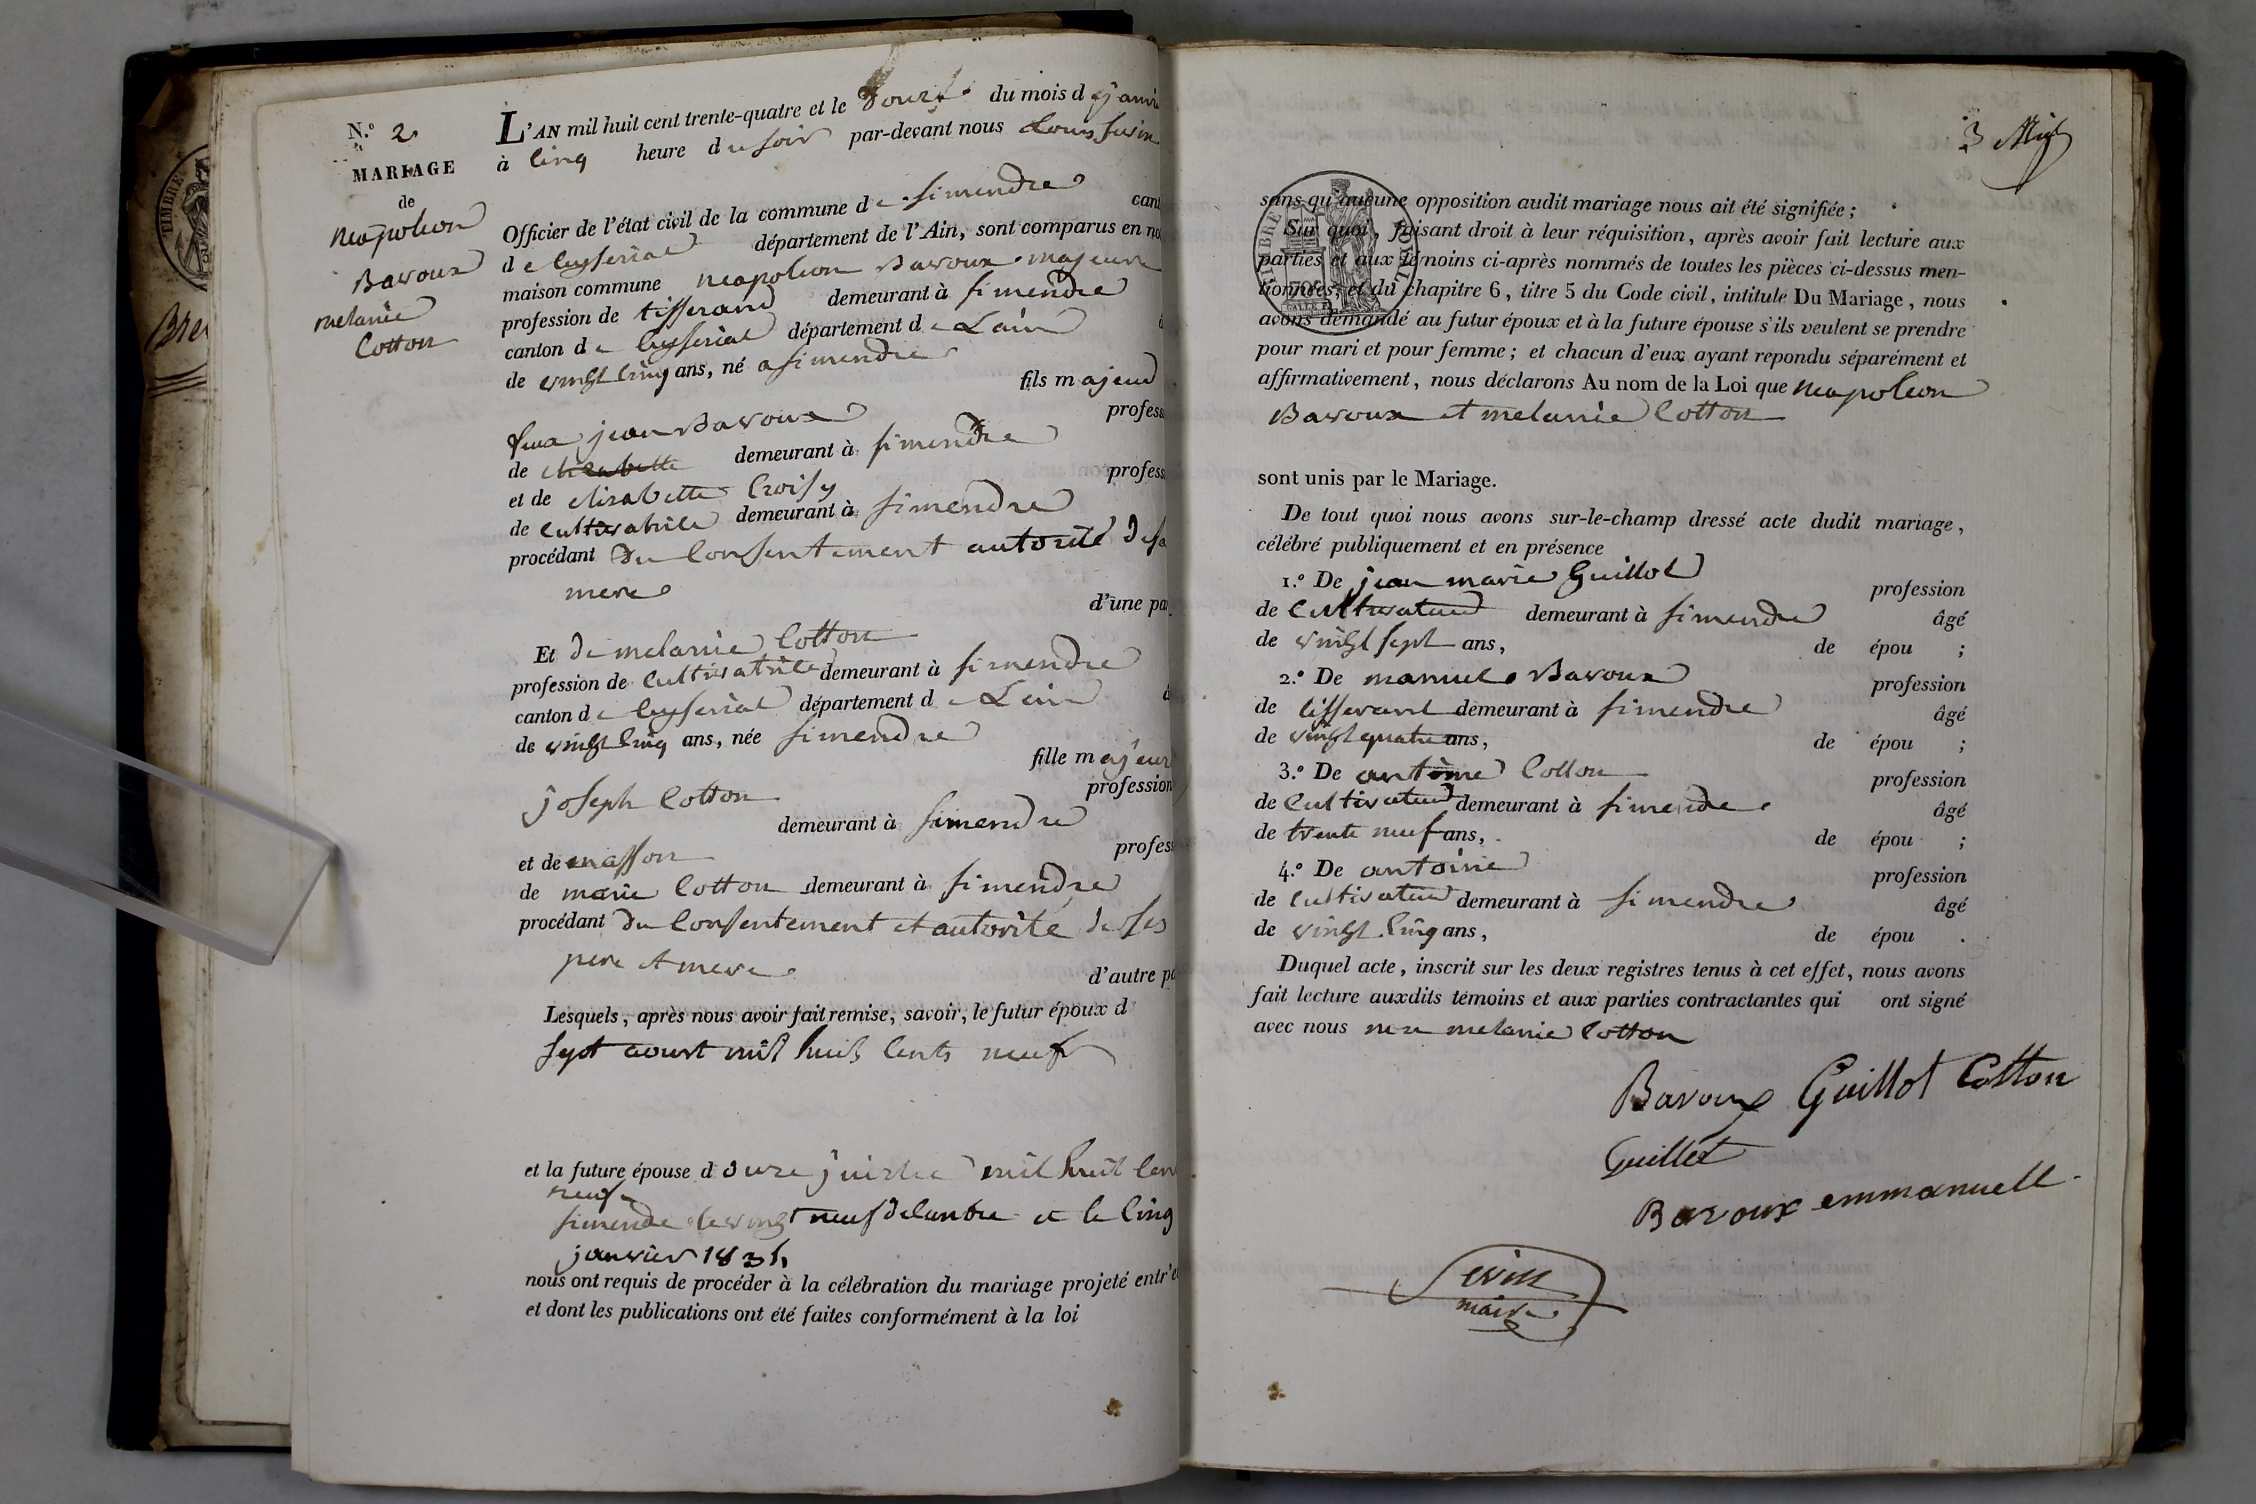 N.º 2
MARIAGE
de
neapoleon
Bavoux
melanie
Cotton
L'AN mil huit cent trente-quatre et le douze du mois d janvi
à cinq heure du soir par-devant nous Louis
Officier de l'état civil de la commune de simendre cant
de Ceyseriat département de l'Ain, sont comparus en no
maison commune neapoleon Bavoux majeure
profession de tisserand demeurant à simendre
canton de Ceyseriat département de Lain
de vingt cinq ans, né a simendre
fils majeur
feux jean Bavoux profess
de demeurant à simendre
et de elisabette Croisy profess
de cultivatrice demeurant à simendre
procédant du consentement autorité de sa
mere
d'une pa
Et de melanie Cotton
profession de cultivatrice demeurant à simendre
canton de Ceyseriat département de Lain
de vingt cinq ans, née simendre
fille majeur
joseph Cotton profession
demeurant à simendre
et de masson profes
de marie Cotton demeurant à simendre
procédant du consentement et autorité de ses
pere et mere
d'autre pa
Lesquels, après nous avoir fait remise, savoir, le futur époux d
sept aoust mil huit cents neuf
et la future épouse d mil huit cen
neuf
simendre le vingt neuf decembre et le cinq
janvier 1834
nous ont requis de procéder à la célébration du mariage projeté entr'e
et dont les publications ont été faites conformément à la loi
3
TIMBRE ROYAL
sans qu'aucune opposition audit mariage nous ait été signifiée;
Sur quoi, faisant droit à leur réquisition, après avoir fait lecture aux
parties et aux témoins ci-après nommés de toutes les pièces ci-dessus men-
tionnées, et du chapitre 6, titre 5 du Code civil, intitulé Du Mariage, nous
avons demandé au futur époux et à la future épouse s'ils veulent se prendre
pour mari et pour femme; et chacun d'eux ayant repondu séparément et
affirmativement, nous déclarons Au nom de la Loi que neapoleon
Bavoux et melanie Cotton
sont unis par le Mariage.
De tout quoi nous avons sur-le-champ dressé acte dudit mariage,
célébré publiquement et en présence
1.º De jean marie Guillot profession
de cultivateur demeurant à simendre âgé
de vingt sept ans, de épou ;
2.º De manuel Bavoux profession
de tisserant demeurant à simendre âgé
de vingt quatre ans, de épou ;
3.º De antoine Cotton profession
de cultivateur demeurant à simendre âgé
de trente neuf ans, de épou ;
4.º De antoine profession
de cultivateur demeurant à simendre âgé
de vingt cinq ans, de épou .
Duquel acte, inscrit sur les deux registres tenus à cet effet, nous avons
fait lecture auxdits témoins et aux parties contractantes qui ont signé
avec nous non melanie Cotton
Bavoux Guillot Cotton
Guillot
Bavoux emmanuell
Sevin
maire